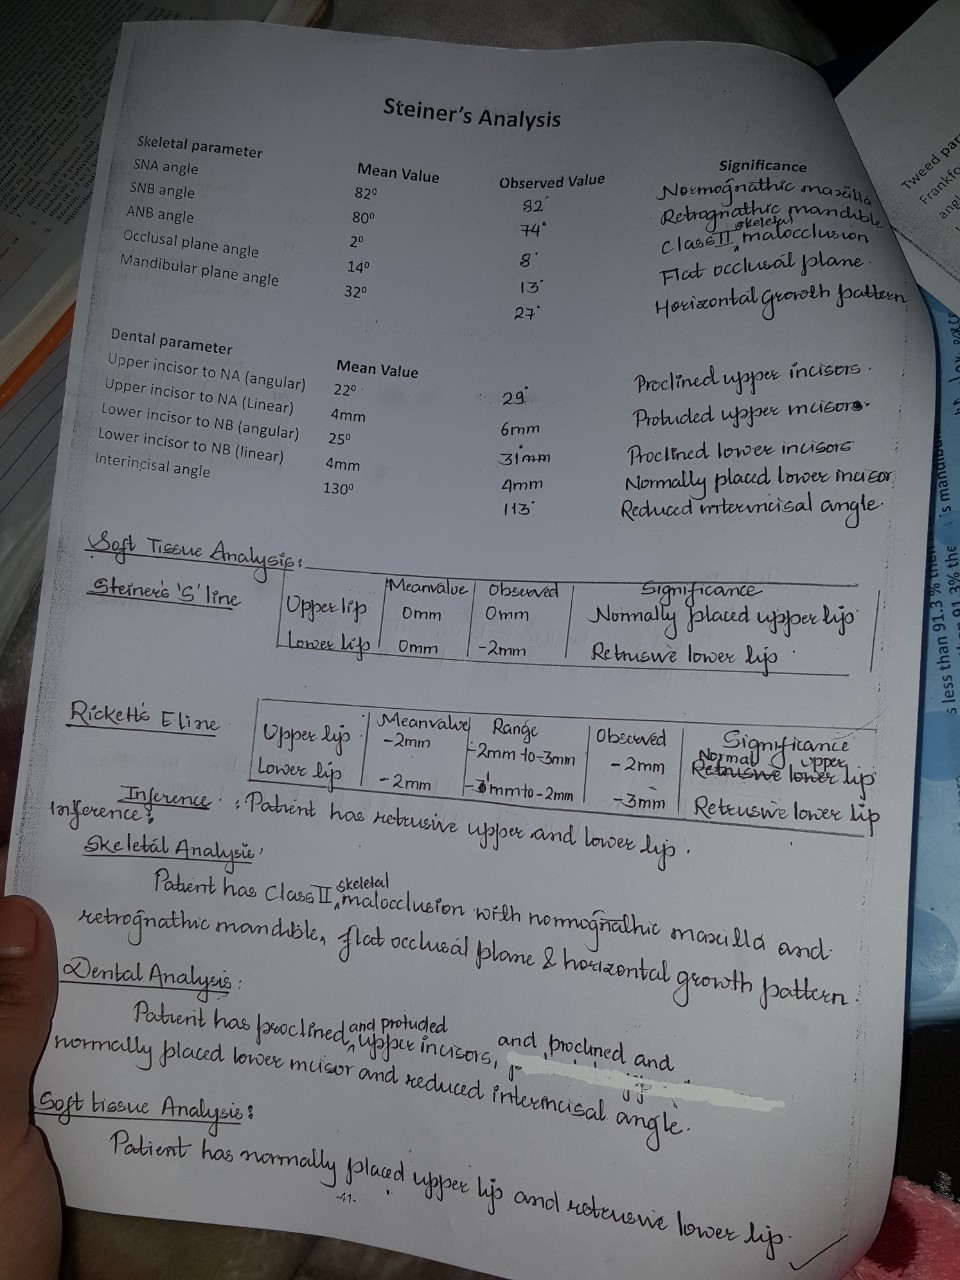 Steiner's Analysis
Skeletal parameter Mean Value Observed Value Significance
SNA angle 82⁰ 82° Normognathic maxilla
SNB angle 80⁰ 74° Retrognathic mandible
ANB angle 2⁰ 8° Class II skeletal malocclusion
Occlusal plane angle 14⁰ 13° Flat occlusal plane.
Mandibular plane angle 32⁰ 27° Horizontal growth pattern
Dental parameter Mean Value
Upper incisor to NA (angular) 22⁰ 29° Proclined upper incisors.
Upper incisor to NA (Linear) 4mm 6mm Protuded upper incisors.
Lower incisor to NB (angular) 25⁰ 31° Proclined lower incisors
Lower incisor to NB (linear) 4mm 4mm Normally placed lower incisor
Interincisal angle 130⁰ 113° Reduced interincisal angle.
Soft Tissue Analysis:
Steiner's 'S' line Meanvalue Observed Significance
Upper lip 0mm 0mm Normally placed upper lip
Lower lip 0mm -2mm Retrusive lower lip
Rickett's E line Meanvalue Range Observed Significance
Upper lip -2mm -2mm to -3mm -2mm Normal upper lip
Lower lip -2mm mm to -2mm -3mm Retrusive lower lip
Inference : Patient has retrusive upper and lower lip.
Inference:
Skeletal Analysis:
Patient has Class II skeletal malocclusion with normognathic maxilla and
retrognathic mandible, flat occlusal plane & horizontal growth pattern.
Dental Analysis:
Patient has proclined and protuded upper incisors, and proclined and
normally placed lower incisor and reduced interincisal angle.
Soft tissue Analysis:
Patient has normally placed upper lip and retrusive lower lip.
-41-
Tweed par
Frankfo
angl
s less than 91.3% then
han 91.3% the
's mandibu